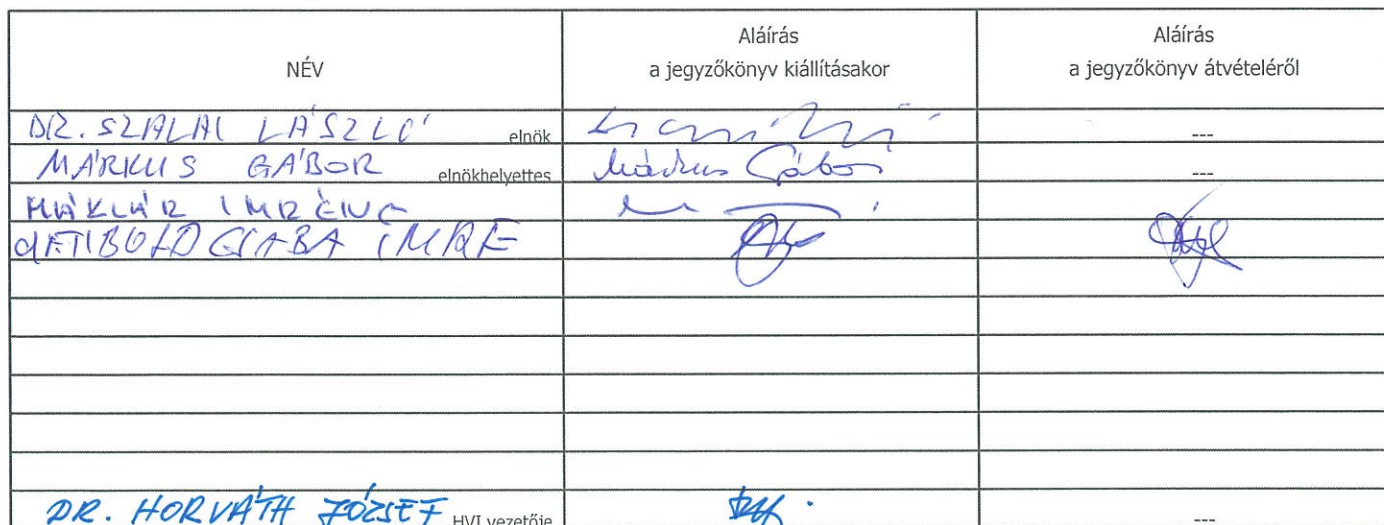 NÉV
Aláírás
a jegyzőkönyv kiállításakor
Aláírás
a jegyzőkönyv átvételéről
DR. SZALAI LÁSZLÓ elnök ---
MÁRKUS GÁBOR elnökhelyettes Márkus Gábor ---
MAKLÁR IMRÉNÉ
CSABA IMRE
DR. HORVÁTH JÓZSEF HVI vezetője ---